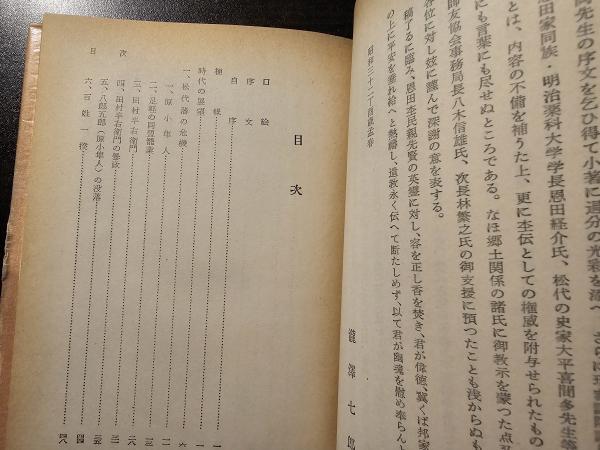 先生の序文を乞ひ得て小著に過分の光彩を添へ
恩田家同族・明治薬科大学学長恩田経介氏、松代の史家大平喜間多先生等
とは、内容の不備を補うた上、更に杢伝としての権威を附与せられたもの
にも言葉にも尽せぬところである。なほ郷土関係の諸氏に御教示を蒙つた点
師友協会事務局長八木信雄氏、次長林繁之氏の御支援に預つたことも浅からぬも
各位に対し玆に謹んで深謝の意を表する。
稿了るに臨み、恩田杢民親先賢の英霊に対し、容を正し香を焚き、君が偉徳、冀くば邦家
の上に平安を垂れ給へと熱禱し、遺教永く伝へて断たしめず、以て君が幽魂を慰め奉らん
昭和三十二丁酉歳孟春
瀧澤七郎
目次
口絵
序文
自序
時代の展望
一、松代藩の危機
一、原小隼人
二、足軽の同盟罷業
三、田村半右衛門
四、田村半右衛門の暴政
五、八郎五郎(原小隼人)の没落
六、百姓一揆
目次